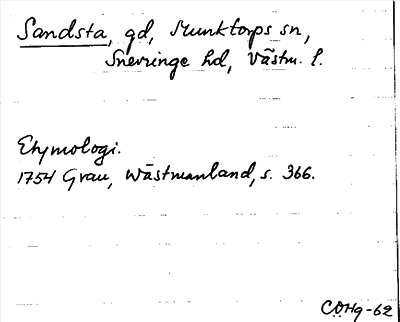 Sandsta, gd, Munktorps sn,
Snevringe hd, Västm. l.
Etymologi.
1754 Grau, Wästmanland, s. 366.
CÖHg-62